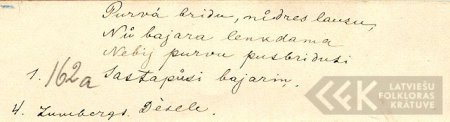 Purvâ bridu, nidres lausu,
Nů bajara lenkdama
Nebij purvu pusbridusi
1. 162a Sastapůsi bajariņ.
4. Zumbergs. Dēsele.
LATVIEŠU
FOLKLORAS
KRĀTUVE